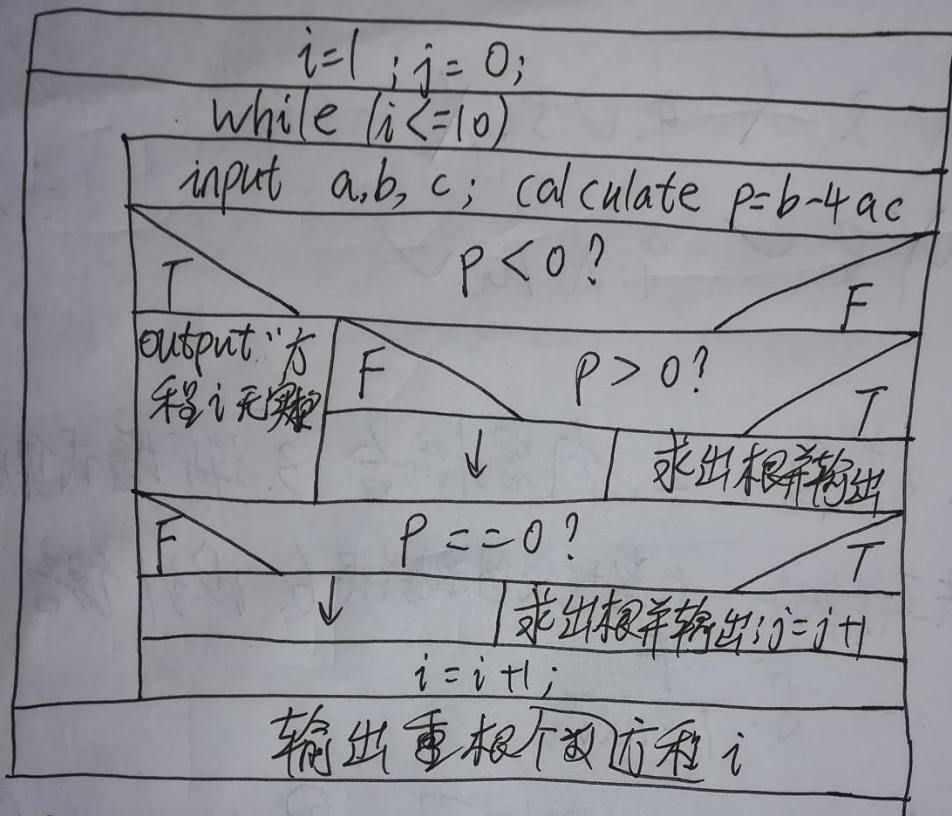 i=1 ; j= 0;
while (i<=10)
input a,b,c; calculate p=b-4ac
p<0?
T
F
output "方
程i无实根
p>0?
F
T
↓
求出根并输出
P==0?
F
T
↓
求出根并输出;j=j+1
i=i+1;
输出重根个数方程i